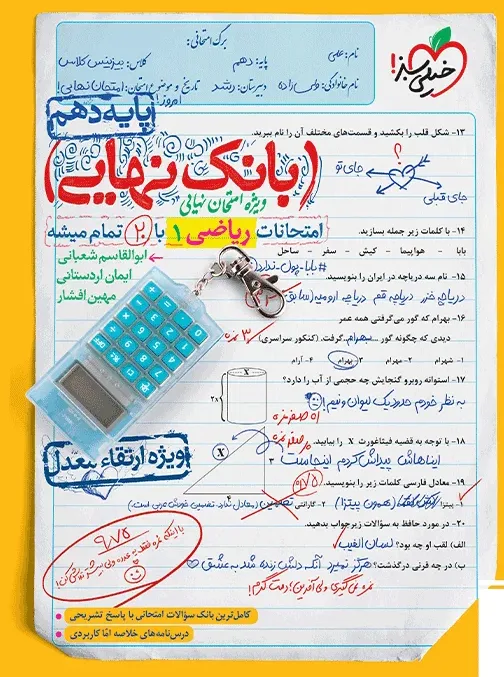 خیلی سبز!
برگ امتحانی:
نام: علی
پایه: دهم
کلاس: بیزینس کلاس
نام خانوادگی: ولی زاده
دبیرستان: رشد
تاریخ و موضوع امتحان: امتحان نهایی!
امروز!
پایه دهم
۱۳- شکل قلب را بکشید و قسمت‌های مختلف آن را نام ببرید.
؟
جای تو
جای قبلی
(بانک نهایی)
ویژه امتحان نهایی
امتحانات ریاضی ۱ با ۲۰ تمام میشه
ابوالقاسم شعبانی
ایمان اردستانی
مهین افشار
۱۴- با کلمات زیر جمله بسازید.
بابا - هواپیما - کیش - سفر - ساحل
#بابا-پول-ندارد!
۱۵- نام سه دریاچه در ایران را بنویسید.
دریاچه خزر دریاچه قم دریاچه ارومیه (سابق)
۱۶- بهرام که گور می‌گرفتی همه عمر
دیدی که چگونه گور ...بهرام... گرفت. (کنکور سراسری)
۳ نمره
۱- شهرام ۲- مهرام ۳- بهرام ۴- آرام
۱۷- استوانه روبرو گنجایش چه حجمی از آب را دارد؟
به نظر خودم حدود یک لیوان و نیم!!
X
2x
۱۸- با توجه به قضیه فیثاغورث X را بیابید.
ایناهاش پیداش کردم اینجاست
X
۳
۴
۱۹- معادل فارسی کلمات زیر را بنویسید.
۰/۷۵
۱- پیتزا
(همون پیتزا)
۲- گارانتی
تضمین
۲۰- در مورد حافظ به سؤالات زیر جواب بدهید.
الف) لقب او چه بود؟ لسان الغیب
ب) در چه قرنی درگذشت؟ هرگز نمیرد آنکه دلش زنده شد به عشق
نمره نمی‌گیری ولی آفرین! دمت گرم!
ویژه ارتقاء معدل
۹/۷۵
کامل‌ترین بانک سؤالات امتحانی با پاسخ تشریحی
درس‌نامه‌های خلاصه اما کاربردی